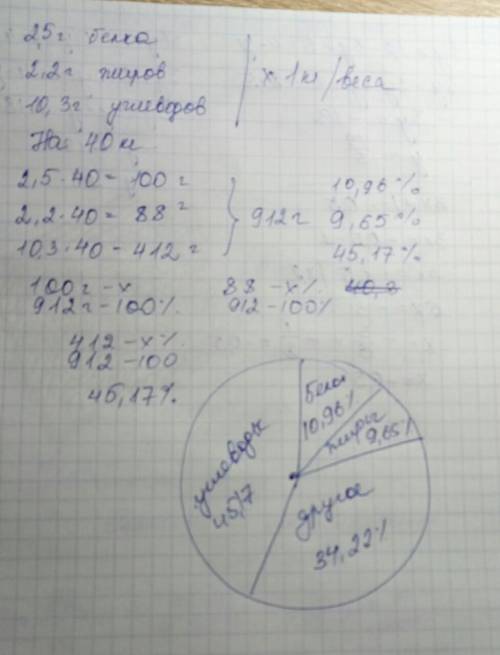 2,5г белка
2,2г жиров
10,3г углеводов
х 1кг/веса
На 40 кг
2,5·40 = 100 г
2,2·40 = 88 г
10,3·40 - 412 г
912г
10,96%
9,65%
45,17%
100г - х
912г - 100%
88 - х%
912 - 100%
412 - х%
912 - 100
45,17%
белки
10,96%
жиры
9,65%
углеводы
45,17
другое
34,22%